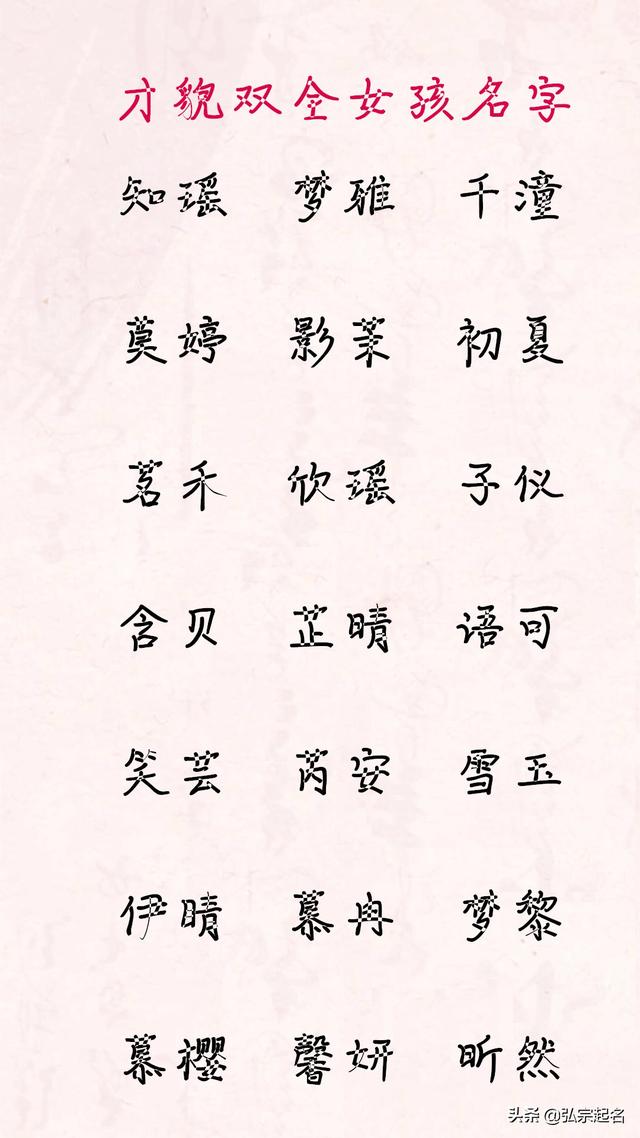 才貌双全女孩名字
知瑶 梦雅 千潼
莫婷 影茉 初夏
茗禾 欣瑶 子仪
含贝 芷晴 语可
笑芸 芮安 雪玉
伊晴 慕冉 梦黎
慕樱 馨妍 昕然
头条 @弘宗起名